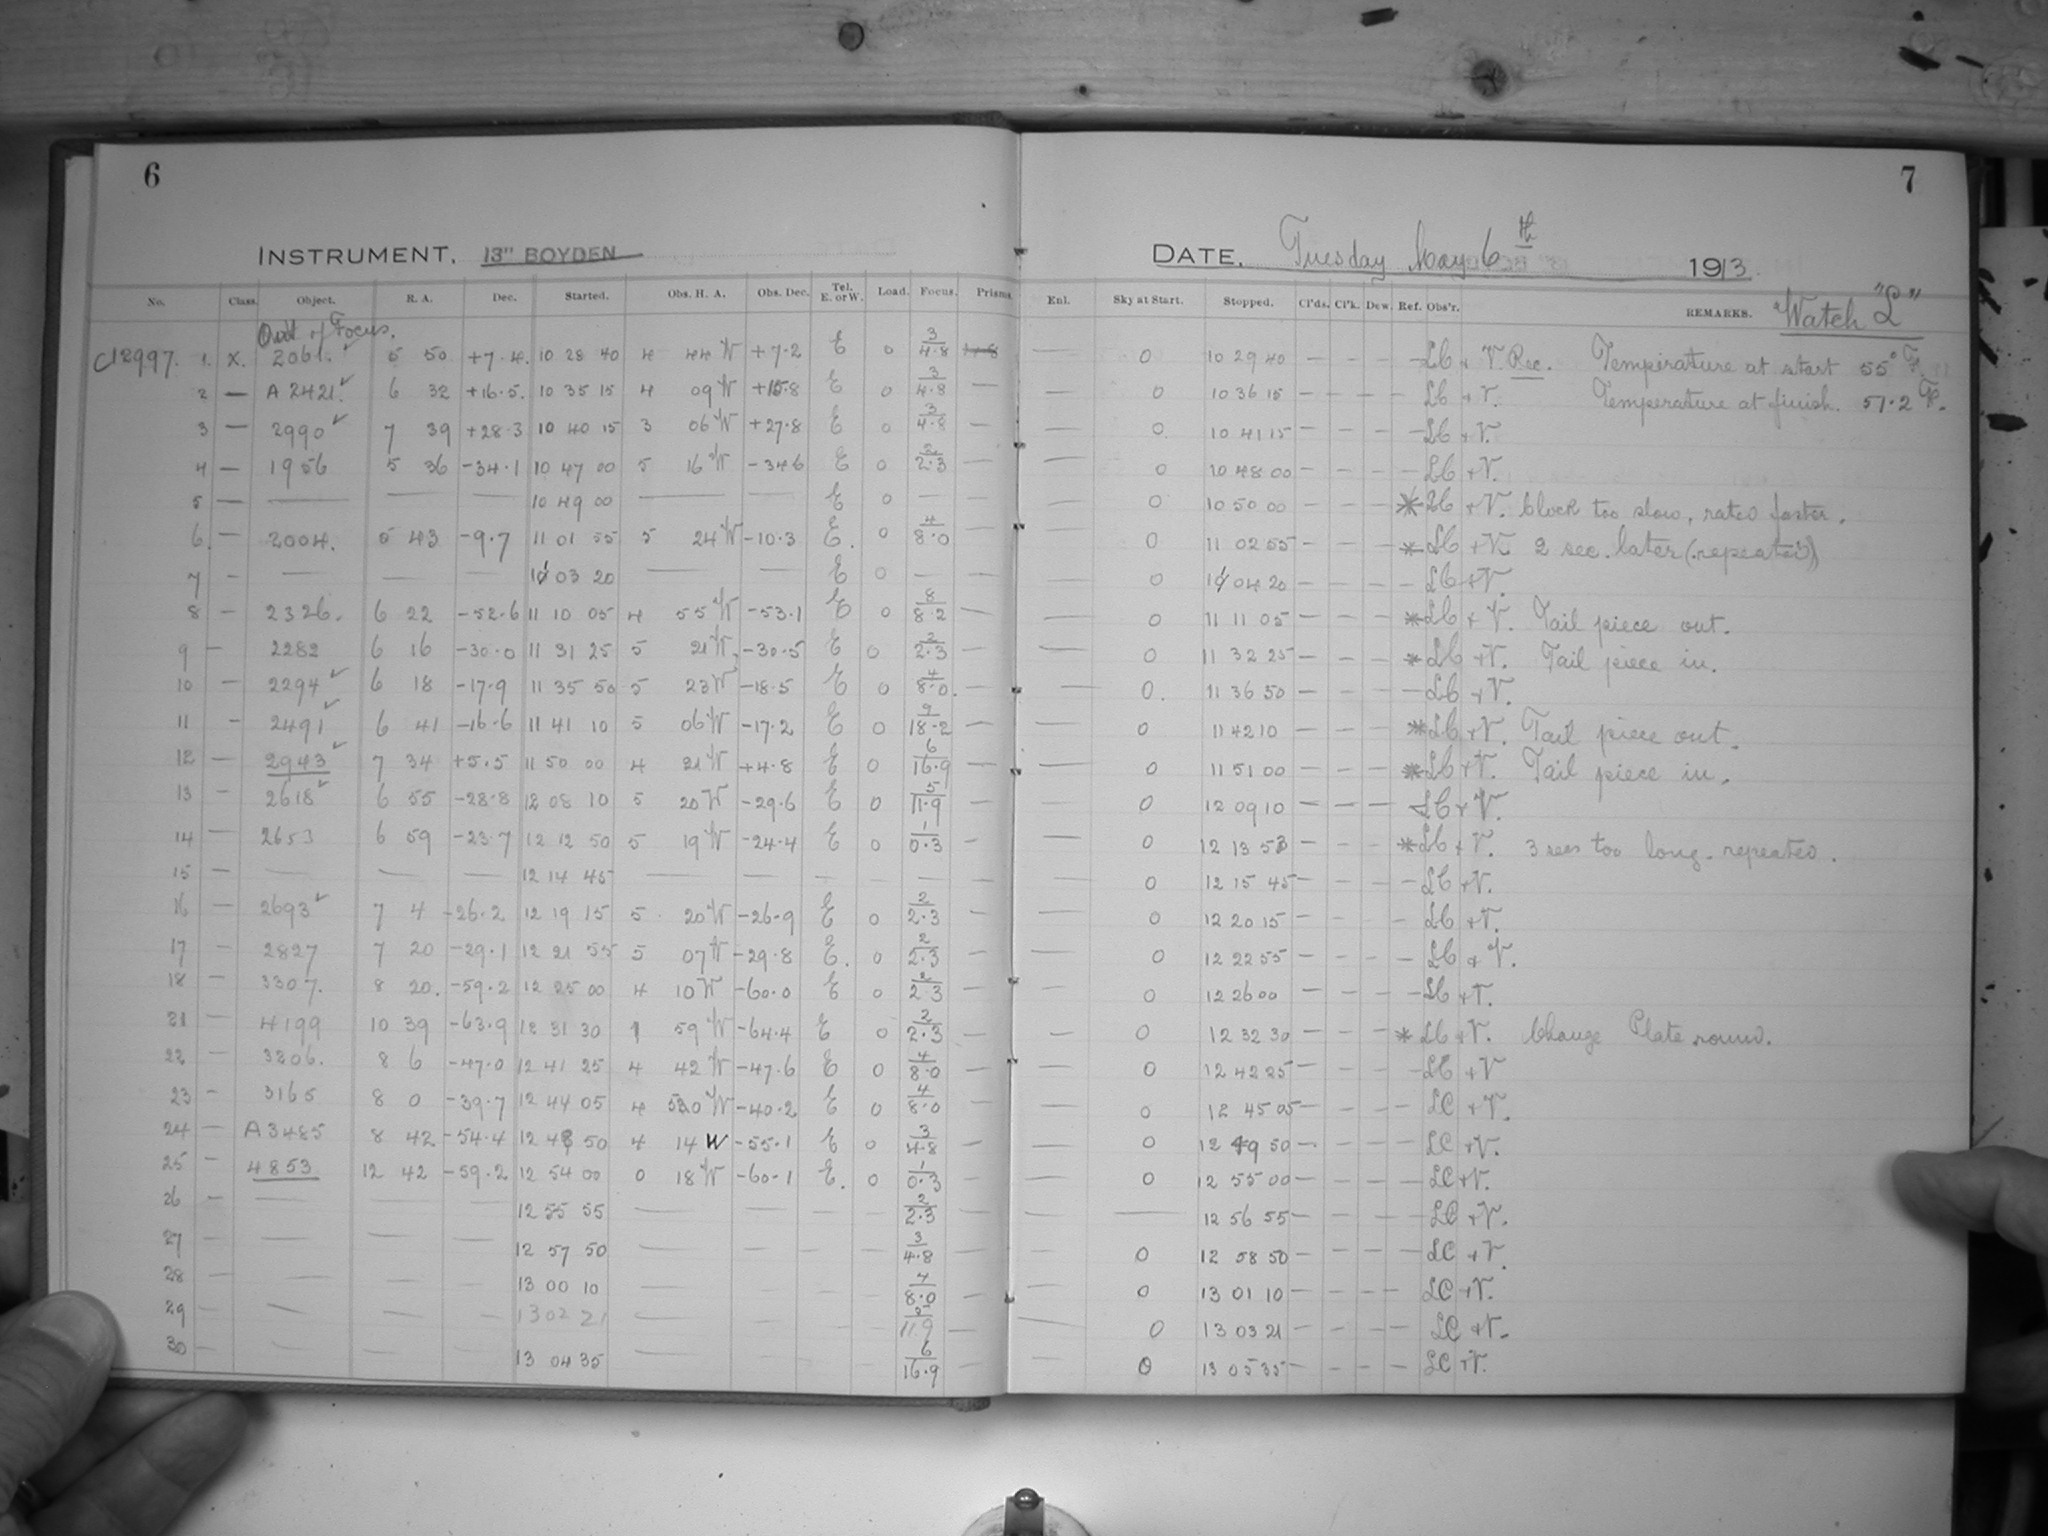 6
INSTRUMENT. 13" BOYDEN
No. Class. Object. R. A. Dec. Started. Obs. H. A. Obs. Dec. Tel. E. or W. Load. Focus. Prisms
Out of Focus.
C12997. 1. X. 2061. ✓ 5 50 +7.4. 10 28 40 4 44 W +7.2 E 0 3/4.8
2 — A 2421. ✓ 6 32 +16.5. 10 35 15 4 09 W +15.8 E 0 3/4.8 —
3 — 2990 ✓ 7 39 +28.3 10 40 15 3 06 W +27.8 E 0 3/4.8 —
4 — 1956 5 36 -34.1 10 47 00 5 16 W -34.6 E 0 2/2.3 —
5 — — — — 10 49 00 — — E 0 — —
6. — 2004. 5 43 -9.7 11 01 55 5 24 W -10.3 E. 0 4/8.0
7 — — — — 11 03 20 — — E 0 — —
8 — 2326. 6 22 -52.6 11 10 05 4 55 W -53.1 E 0 8/8.2 —
9 — 2282 6 16 -30.0 11 31 25 5 21 W. -30.5 E 0 2/2.3 —
10 — 2294 ✓ 6 18 -17.9 11 35 50 5 23 W -18.5 E 0 4/8.0. —
11 — 2491 ✓ 6 41 -16.6 11 41 10 5 06 W -17.2 E 0 9/18.2 —
12 — 2943 ✓ 7 34 +5.5 11 50 00 4 21 W +4.8 E 0 6/16.9 —
13 — 2618 ✓ 6 55 -28.8 12 08 10 5 20 W -29.6 E 0 5/11.9 —
14 — 2653 6 59 -23.7 12 12 50 5 19 W -24.4 E 0 1/0.3 —
15 — — — — 12 14 45 — — — — — —
16 — 2693 ✓ 7 4 -26.2 12 19 15 5 20 W -26.9 E 0 2/2.3 —
17 — 2827 7 20 -29.1 12 21 55 5 07 W -29.8 E. 0 2/2.3 —
18 — 3307. 8 20. -59.2 12 25 00 4 10 W -60.0 E 0 2/2.3 —
21 — 4199 10 39 -63.9 12 31 30 1 59 W -64.4 E 0 2/2.3 —
22 — 3206. 8 6 -47.0 12 41 25 4 42 W -47.6 E 0 4/8.0 —
23 — 3165 8 0 -39.7 12 44 05 4 W -40.2 E 0 4/8.0 —
24 — A 3485 8 42 -54.4 12 48 50 4 14 W -55.1 E 0 3/4.8 —
25 — 4853 12 42 -59.2 12 54 00 0 18 W -60.1 E. 0 1/0.3 —
26 — — — — 12 55 55 — — — — 2/2.3 —
27 — — — — 12 57 50 — — — — 3/4.8 —
28 — — — — 13 00 10 — — — — 4/8.0 —
29 — — — — 13 02 21 — — — — 5/11.9 —
30 — — — — 13 04 35 — — — — 6/16.9 —
7
DATE. Tuesday May 6th 1913.
Enl. Sky at Start. Stopped. Cl'ds. Cl'k. Dew. Ref. Obs'r. REMARKS. Watch "L"
— 0 10 29 40 — — — — LC + V. Rec. Temperature at start 55° F.
— 0 10 36 15 — — — — LC + V. Temperature at finish. 57.2 F.
— 0 10 41 15 — — — — LC + V.
— 0 10 48 00 — — — — LC + V.
— 0 10 50 00 — — — * LC + V. Clock too slow, rated faster.
— 0 11 02 55 — — — * LC + V. 2 sec. later (repeated)
— 0 11 04 20 — — — — LC + V.
— 0 11 11 05 — — — * LC + V. Tail piece out.
— 0 11 32 25 — — — * LC + V. Tail piece in.
— 0. 11 36 50 — — — — LC + V.
— 0 11 42 10 — — — * LC + V. Tail piece out.
— 0 11 51 00 — — — * LC + V. Tail piece in.
— 0 12 09 10 — — — LC + V.
— 0 12 13 53 — — — * LC + V. 3 secs too long. repeated.
— 0 12 15 45 — — — — LC + V.
— 0 12 20 15 — — — — LC + V.
— 0 12 22 55 — — — — LC & V.
— 0 12 26 00 — — — — LC + V.
— 0 12 32 30 — — — * LC + V. Change Plate round.
— 0 12 42 25 — — — — LC + V
— 0 12 45 05 — — — — LC + V.
— 0 12 49 50 — — — — LC + V.
— 0 12 55 00 — — — — LC + V.
— — 12 56 55 — — — — LC + V.
— 0 12 58 50 — — — — LC + V.
— 0 13 01 10 — — — — LC + V.
— 0 13 03 21 — — — — LC + V.
— 0 13 05 35 — — — — LC + V.